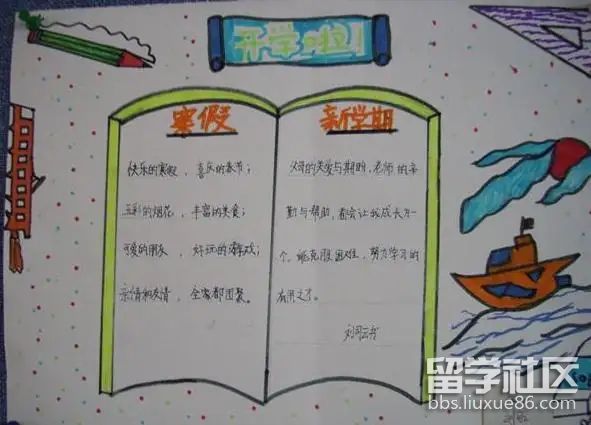 开学啦！
寒假
快乐的寒假、喜庆的春节；
五彩的烟花、丰富的美食；
可爱的朋友、好玩的游戏；
亲情和友情、全家都团聚。
新学期
父母的关爱与期盼，老师的辛
勤与帮助，都会让我成长为一
个，能克服困难，努力学习的
有用之才。
留学社区
bbs.liuxue86.com